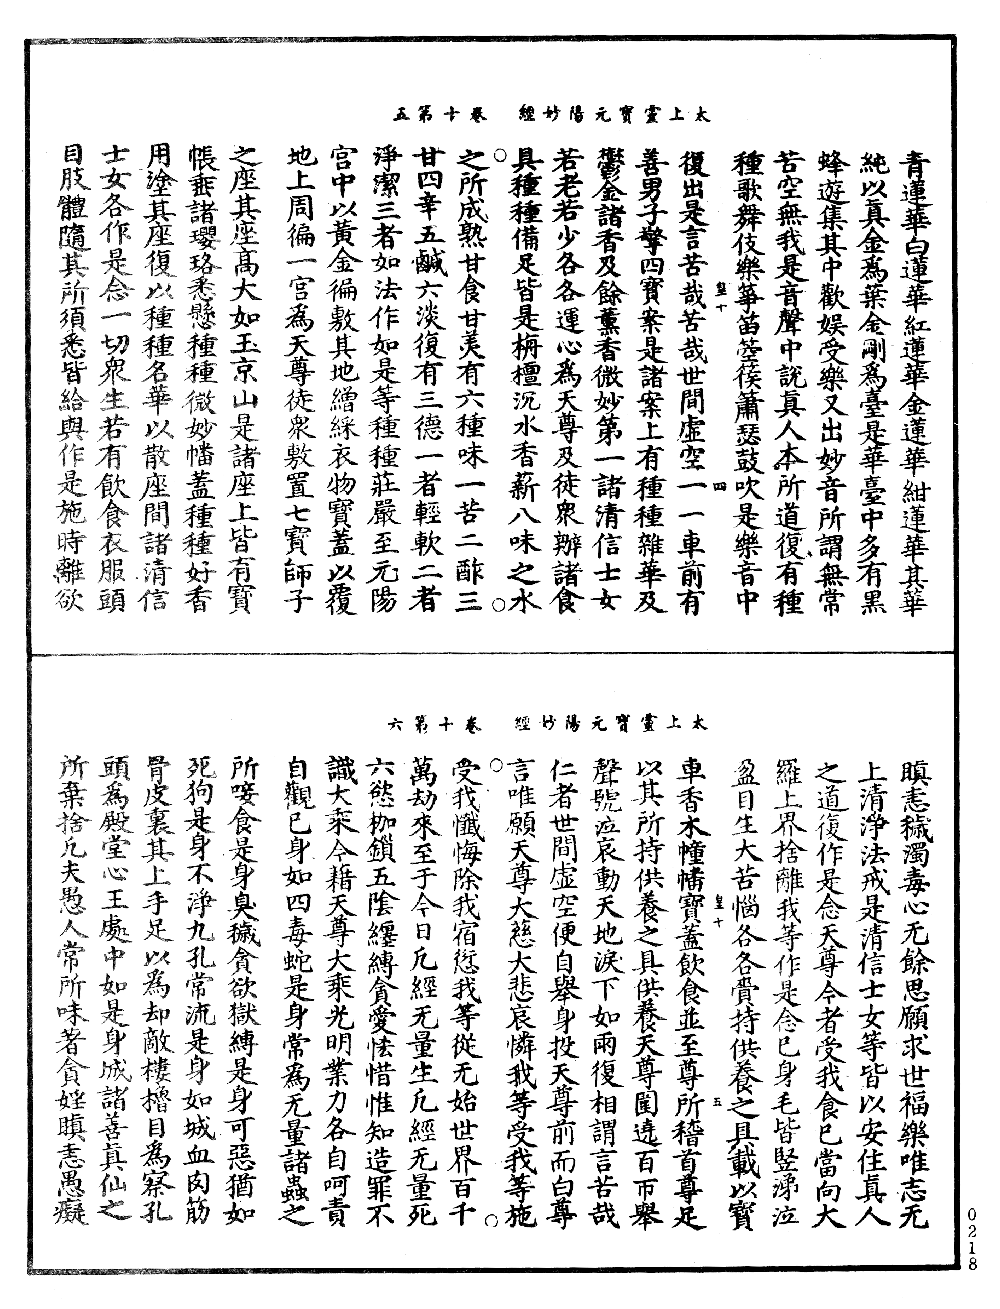 太上靈寶元陽妙經　卷十第五
青蓮華白蓮華紅蓮華金蓮華紺蓮華其華
純以真金為葉金剛為臺是華臺中多有黑
蜂遊集其中歡娛受樂又出妙音所謂無常
苦空無我是音聲中說真人本所道復有種
種歌舞伎樂箏笛箜篌簫瑟鼓吹是樂音中
皇十　四
復出是言苦哉苦哉世間虛空一一車前有
善男子擎四寶案是諸案上有種種雜華及
鬱金諸香及餘薰香微妙第一諸清信士女
若老若少各各運心為天尊及徒衆辦諸食
具種種備足皆是栴檀沉水香薪八味之水
之所成熟甘食甘美有六種味一苦二酢三
甘四辛五鹹六淡復有三德一者輕軟二者
淨潔三者如法作如是等種種莊嚴至元陽
宮中以黃金徧敷其地繒綵衣物寶蓋以覆
地上周徧一宮為天尊徒衆敷置七寶師子
之座其座高大如玉京山是諸座上皆有寶
帳垂諸瓔珞悉懸種種微妙幡蓋種種好香
用塗其座復以種種名華以散座間諸清信
士女各作是念一切衆生若有飲食衣服頭
目肢體隨其所須悉皆給與作是施時離欲
太上靈寶元陽妙經　卷十第六
瞋恚穢濁毒心无餘思願求世福樂唯志无
上清淨法戒是清信士女等皆以安住真人
之道復作是念天尊今者受我食已當向大
羅上界捨離我等作是念已身毛皆豎涕泣
盈目生大苦惱各各賷持供養之具載以寶
皇十　五
車香木幢幡寶蓋飲食並至尊所稽首尊足
以其所持供養之具供養天尊圍遶百帀舉
聲號泣哀動天地淚下如雨復相謂言苦哉
仁者世間虛空便自舉身投天尊前而白尊
言唯願天尊大慈大悲哀憐我等受我等施
受我懺悔除我宿愆我等從无始世界百千
萬劫來至于今日凡經无量生凡經无量死
六慾枷鎖五陰纏縛貪愛怯惜惟知造罪不
識大乘今藉天尊大乘光明業力各自呵責
自觀已身如四毒蛇是身常為无量諸蟲之
所唼食是身臭穢貪欲獄縛是身可惡猶如
死狗是身不淨九孔常流是身如城血肉筋
骨皮裹其上手足以為却敵樓櫓目為竅孔
頭為殿堂心王處中如是身城諸善真仙之
所棄捨凡夫愚人常所味著貪婬瞋恚愚癡
0218